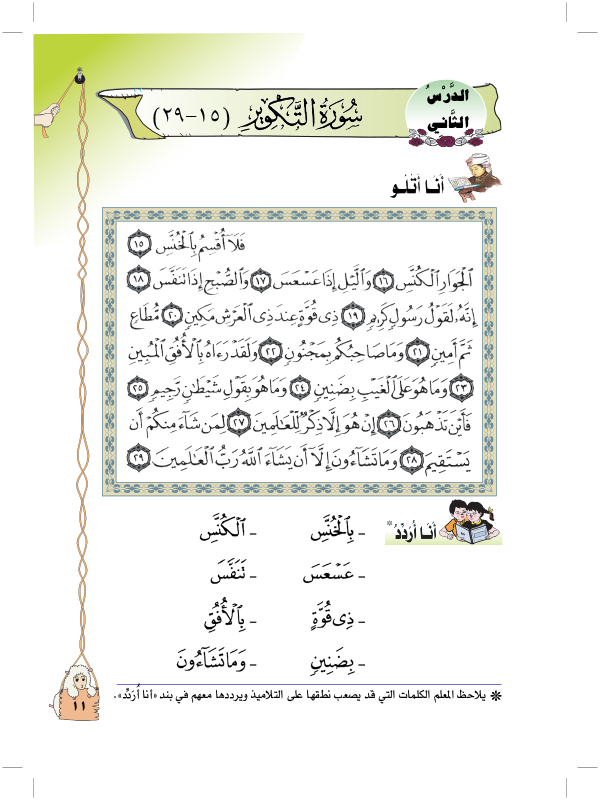 الدَّرْسُ
الثَّاني
سُورَةُ التَّكْوِيرِ (١٥-٢٩)
أنَا أتْلُو
فَلَآ أُقْسِمُ بِالْخُنَّسِ ١٥
الْجَوَارِ الْكُنَّسِ ١٦ وَالَّيْلِ إِذَا عَسْعَسَ ١٧ وَالصُّبْحِ إِذَا تَنَفَّسَ ١٨
إِنَّهُۥ لَقَوْلُ رَسُولٍ كَرِيمٍ ١٩ ذِى قُوَّةٍ عِندَ ذِى الْعَرْشِ مَكِينٍ ٢٠ مُّطَاعٍ
ثَمَّ أَمِينٍ ٢١ وَمَا صَاحِبُكُم بِمَجْنُونٍ ٢٢ وَلَقَدْ رَءَاهُ بِالْأُفُقِ الْمُبِينِ
٢٣ وَمَا هُوَ عَلَى الْغَيْبِ بِضَنِينٍ ٢٤ وَمَا هُوَ بِقَوْلِ شَيْطَانٍ رَّجِيمٍ ٢٥
فَأَيْنَ تَذْهَبُونَ ٢٦ إِنْ هُوَ إِلَّا ذِكْرٌ لِّلْعَالَمِينَ ٢٧ لِمَن شَآءَ مِنكُمْ أَن
يَسْتَقِيمَ ٢٨ وَمَا تَشَآءُونَ إِلَّآ أَن يَشَآءَ اللَّهُ رَبُّ الْعَالَمِينَ ٢٩
أنَا أُرَدِّدُ*
- بِالْخُنَّسِ - الْكُنَّسِ
- عَسْعَسَ - تَنَفَّسَ
- ذِى قُوَّةٍ - بِالْأُفُقِ
- بِضَنِينٍ - وَمَا تَشَآءُونَ
* يلاحظ المعلم الكلمات التي قد يصعب نطقها على التلاميذ ويرددها معهم في بند «أنا أُرَدِّد».
١١